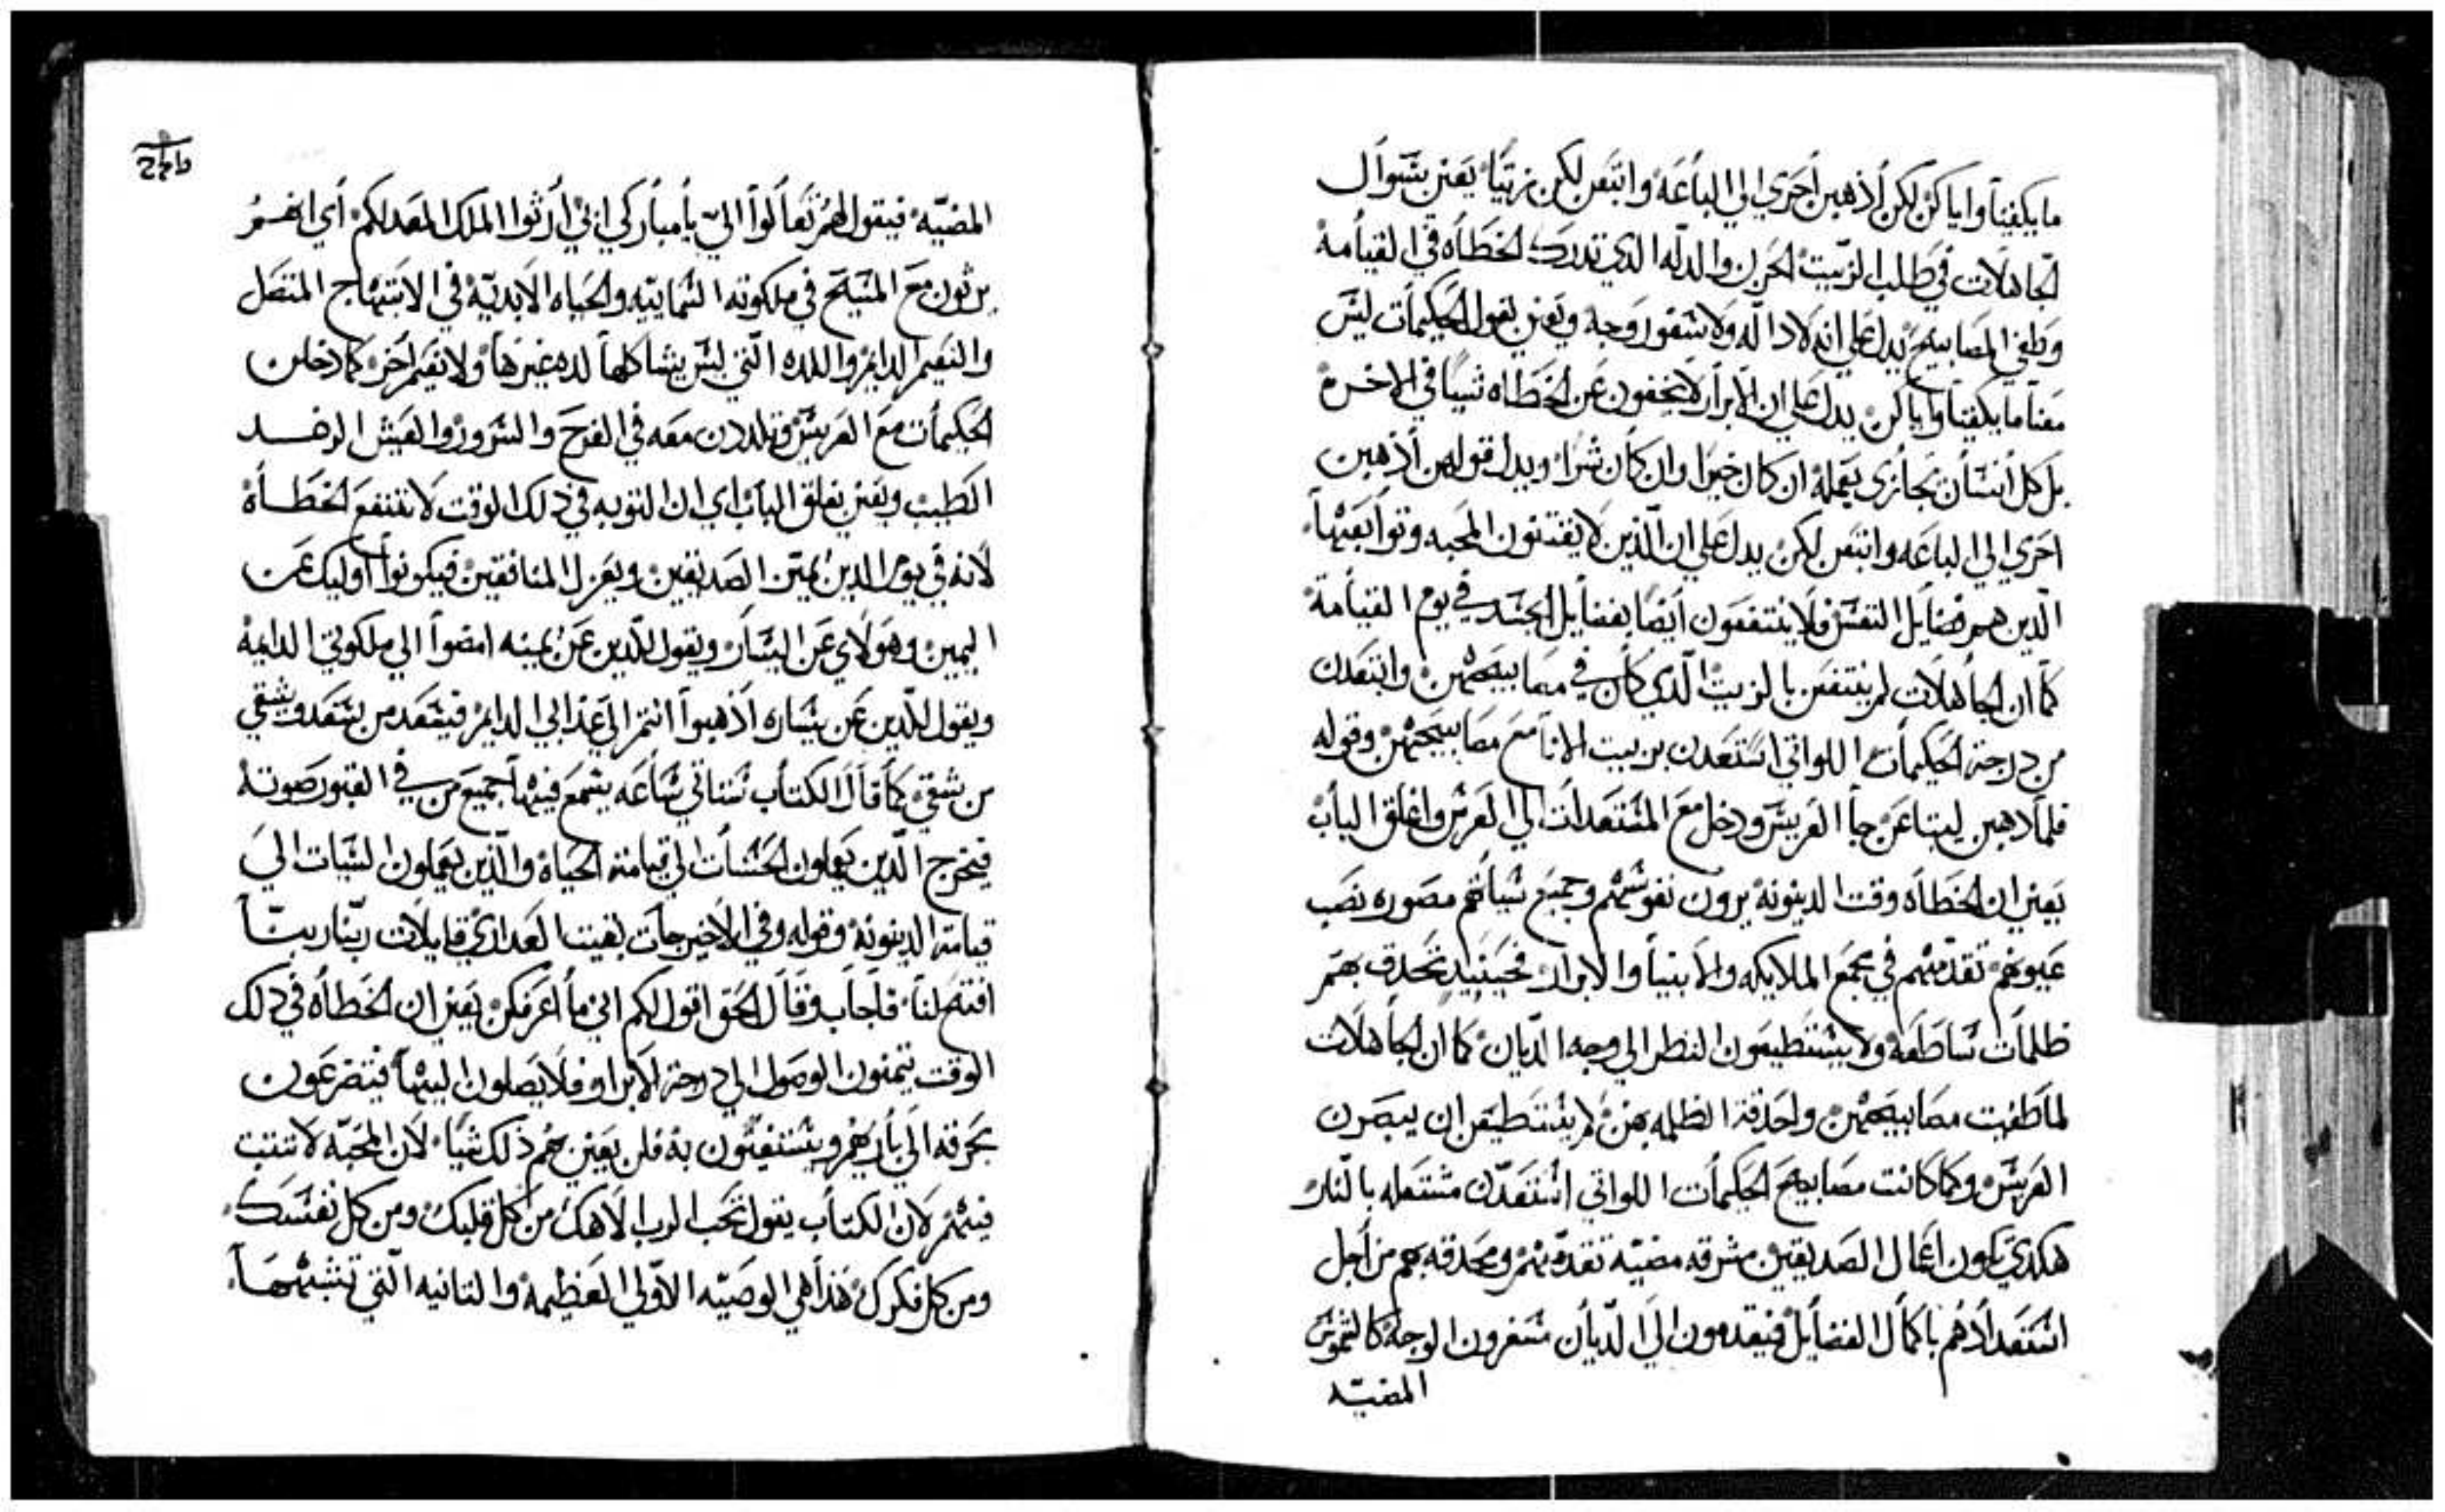 ما يكفينا واياكن لكن أذهبن أحري الي الباعه وابتعن لكن زيتا يعني بسوال
الجاهلات في طلب الزيت الحزن والدله الذي تدرك الخطاه في القيامه
وطفي المصابيح يدل علي انه لا داله ولا سفور وجه ويعني بقول الحكيمات ليس
معنا ما يكفينا واياكن يدل علي ان الابرار لا يخفون عن الخطاه شيا في الاخره
بل كل انسان يجازي بعمله ان كان خيرا وان كان شرا ويدل قولهن أذهبن
احري الي الباعه وابتعن لكن يدل علي ان الذين لا يقتنون المحبه وتوابعها
الذين هم فضايل النفس فلا ينتفعون ايضا بفضايل الجسد في يوم القيامه
كما ان الجاهلات لم ينتفعن بالزيت الذي كان في مصابيحهن وابتعدن
من درجة الحكيمات اللواتي استعدن بزيت الانا مع مصابيحهن وقوله
فلما ذهبن ليبتاعن جا العريس ودخل مع المستعدات الي العرس واغلق الباب
يعني ان الخطاه وقت الدينونه يرون نفوسهم وجميع سياتهم مصوره نصب
عيونهم تقدمهم في مجمع الملايكه والانبيا والابرار فحينيد تحدق بهم
ظلمات ساطعه ولا يستطيعون النظر الي وجه الديان كما ان الجاهلات
لما طفيت مصابيحهن واحدقة الظلمه بهن لم يستطيعن ان يبصرن
العريس وكما كانت مصابيح الحكمات اللواتي استعدن مشتعله بالنار
هكدي تكون اعمال الصديقين مشرقه مضيه تقدمهم ومحدقه بهم من أجل
استعدادهم باكمال الفضايل فيتقدمون الي الديان مسفرون الوجه كالشموس
المضيه
المضيه فيقول لهم تعالوا الي يا مباركي ابي أرثوا الملك المعد لكم أي انهم
يرثون مع المسيح في ملكوته السمايته والحياه الابديه في الابتهاج المتصل
والنعيم الدايم واللده التي ليس يشاكلها لده غيرها ولا نعيم اخر كما دخلن
الحكيمات مع العريس وتلددن معه في الفرح والسرور والعيش الرغد
الطيب ويعني بغلق الباب اي ان التوبه في ذلك الوقت لا تنفع الخطاه
لانه في يوم الدين يميز الصديقين ويعزل المنافقين فيكونوا أوليك عن
اليمين وهولاي عن اليسار ويقول للدين عن يمينه امضوا الي ملكوتي الدايمه
ويقول للدين عن يساره أذهبوا انتم الي عذابي الدايم فيسعد من يسعد ويشقي
من شقي كما قال الكتاب ستاتي ساعه يسمع فيها جميع من في القبور صوته
فيخرج الذين يعملون الحسنات الي قيامة الحياه والذين يعملون السيات الي
قيامة الدينونه وقوله وفي الاخير جات بقيت العداري قايلات ربنا ربنا
افتح لنا فاجاب وقال الحق اقول لكم اني ما أعرفكن يعني ان الخطاه في ذلك
الوقت يتمنون الوصول الي درجة الابرار فلا يصلون اليها فيتضرعون
بحرقه الي بارهم ويستغيثون به فلن يعني عنهم ذلك شيا لان المحبه لا تثبت
فيهم لان الكتاب يقول تحب الرب الاهك من كل قلبك ومن كل نفسك
ومن كل فكرك هذا هي الوصيه الاولي العظيمه والثانيه التي تشبهها